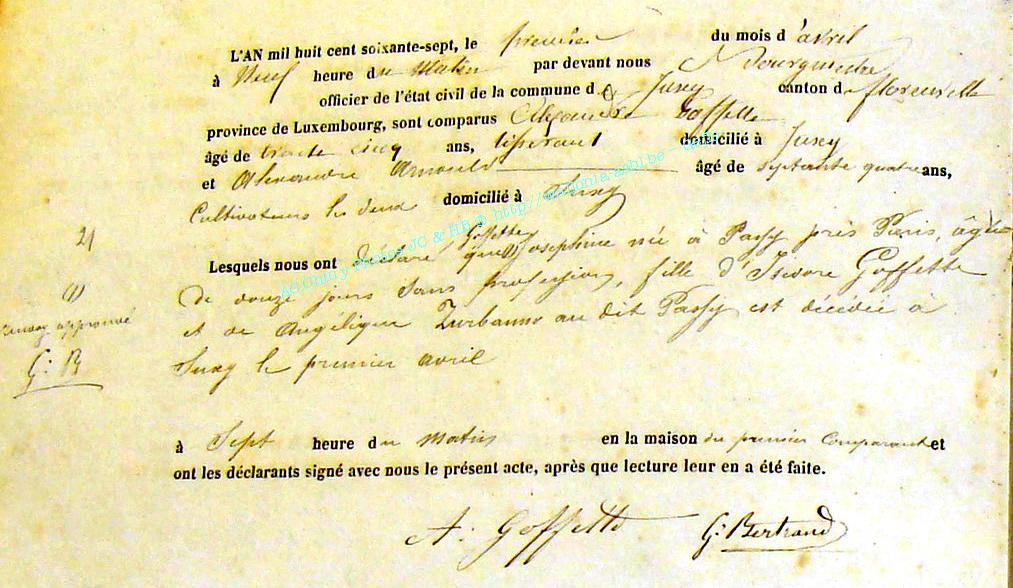 L'AN mil huit cent soixante-sept, le premier du mois d'avril
à Neuf heure du Matin par devant nous Bourgmestre
officier de l'état civil de la commune de Suxy canton de florenville
province de Luxembourg, sont comparus Alexandre Goffette
âgé de trente cinq ans, tisserant domicilié à Suxy
et Alexandre Arnould âgé de septante quatre ans,
Cultivateurs les deux domicilié à Suxy
Goffette
2/ Lesquels nous ont déclaré que (1) Josephine née à Passy près Paris, âgée
(1) de douze jours sans profession, fille d'Isidore Goffette
Renvoy approuvé et de Angélique au dit Passy est décédée à
G. B Suxy le premier avril
à Sept heure du matin en la maison du premier Comparant et
ont les déclarants signé avec nous le présent acte, après que lecture leur en a été faite.
A. Goffette G. Bertrand
JC & HB © http://